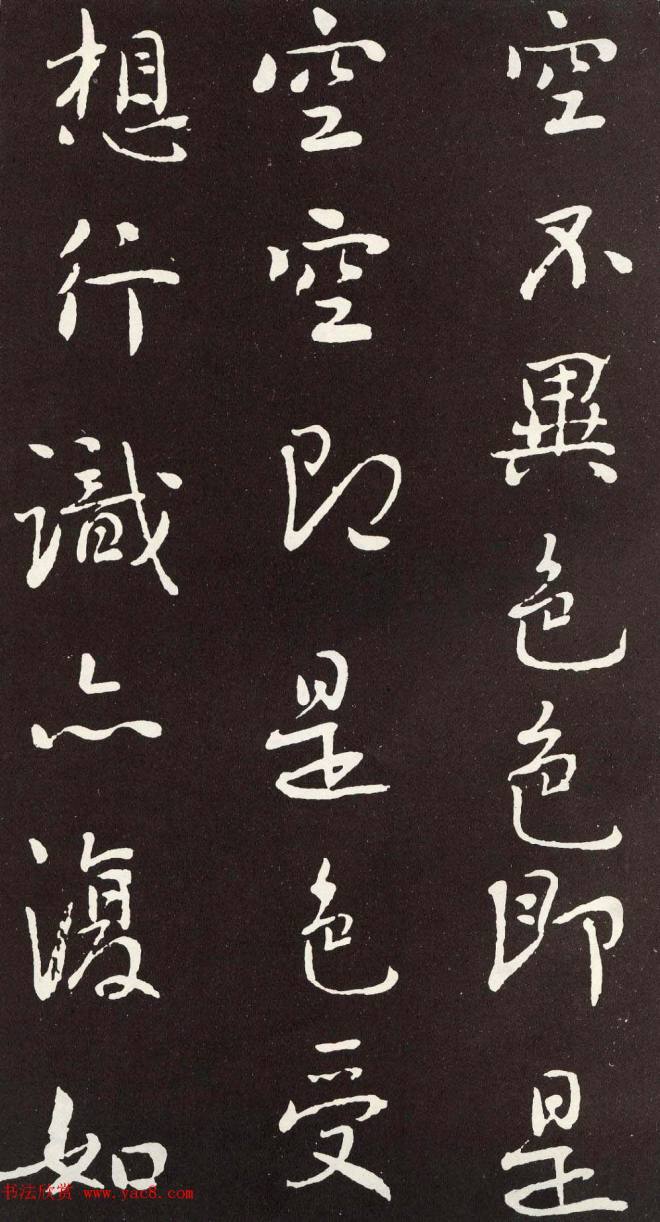 空不異色色即是
空空即是色受
想行識亦復如
书法欣赏 www.yac8.com